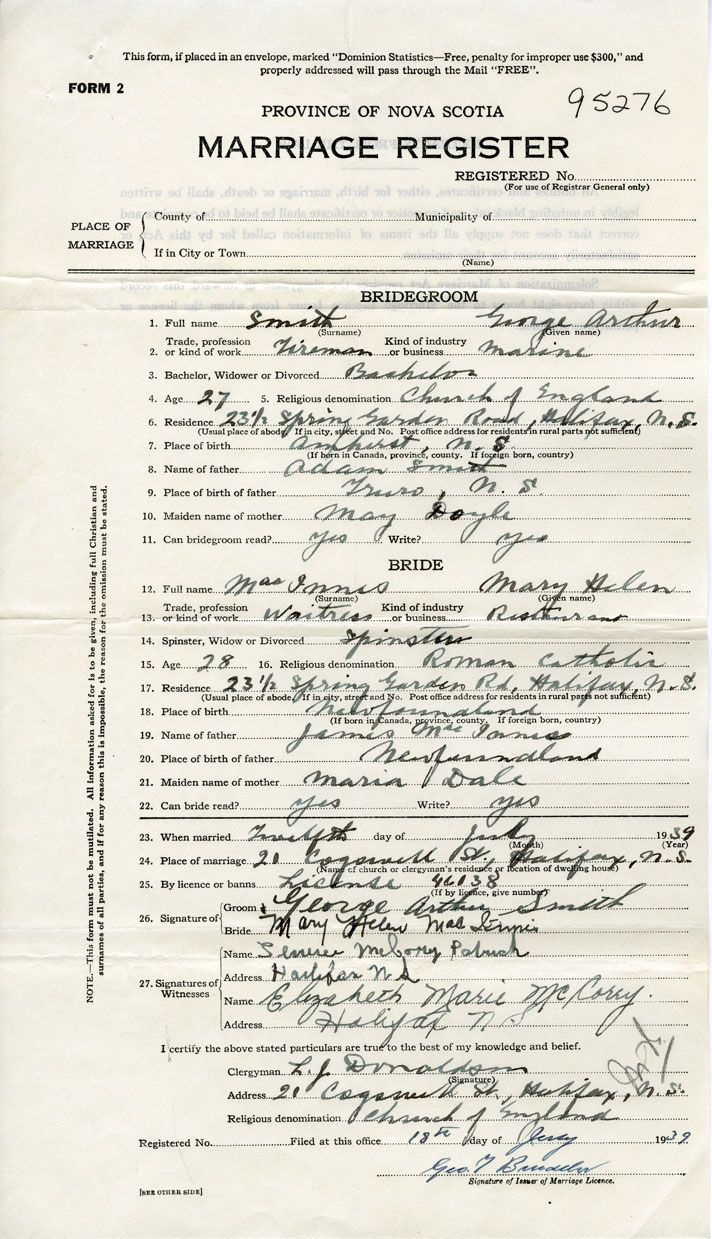 This form, if placed in an envelope, marked "Dominion Statistics—Free, penalty for improper use $300," and
properly addressed will pass through the Mail "FREE".
FORM 2
95276
PROVINCE OF NOVA SCOTIA
MARRIAGE REGISTER
REGISTERED No.
(For use of Registrar General only)
PLACE OF MARRIAGE
County of Municipality of
If in City or Town
(Name)
BRIDEGROOM
1. Full name Smith George Arthur
(Surname) (Given name)
2. Trade, profession or kind of work Fireman Kind of industry or business Marine
3. Bachelor, Widower or Divorced Bachelor
4. Age 27 5. Religious denomination Church of England
6. Residence 23½ Spring Garden Road, Halifax, N.S.
(Usual place of abode. If in city, street and No. Post office address for residents in rural parts not sufficient)
7. Place of birth Amherst, N.S
(If born in Canada, province, county. If foreign born, country)
8. Name of father Adam Smith
9. Place of birth of father Truro, N.S.
10. Maiden name of mother May Doyle
11. Can bridegroom read? yes Write? yes
BRIDE
12. Full name MacInnis Mary Helen
(Surname) (Given name)
13. Trade, profession or kind of work Waitress Kind of industry or business Restaurant
14. Spinster, Widow or Divorced Spinster
15. Age 28 16. Religious denomination Roman Catholic
17. Residence 23½ Spring Garden Rd, Halifax, N.S.
(Usual place of abode. If in city, street and No. Post office address for residents in rural parts not sufficient)
18. Place of birth Newfoundland
(If born in Canada, province, county. If foreign born, country)
19. Name of father James MacInnis
20. Place of birth of father Newfoundland
21. Maiden name of mother Maria Dale
22. Can bride read? yes Write? yes
23. When married Twelfth day of July 1939
(Month) (Year)
24. Place of marriage 21 Cogswell St., Halifax, N.S.
(Name of church or clergyman's residence or location of dwelling house)
25. By licence or banns License 46138
(If by licence, give number)
26. Signature of
Groom George Arthur Smith
Bride Mary Helen MacInnis
27. Signatures of Witnesses
Name
Address Halifax N S
Name Elizabeth Marie McCorry.
Address Halifax N S
I certify the above stated particulars are true to the best of my knowledge and belief.
Clergyman L. J. Donaldson
(Signature)
Address 21 Cogswell St., Halifax, N.S.
Religious denomination Church of England
Registered No. Filed at this office 18th day of July 1939
Geo. T
Signature of Issuer of Marriage Licence.
[SEE OTHER SIDE]
NOTE.—This form must not be mutilated. All information asked for is to be given, including full Christian and
surnames of all parties, and if for any reason this is impossible, the reason for the omission must be stated.